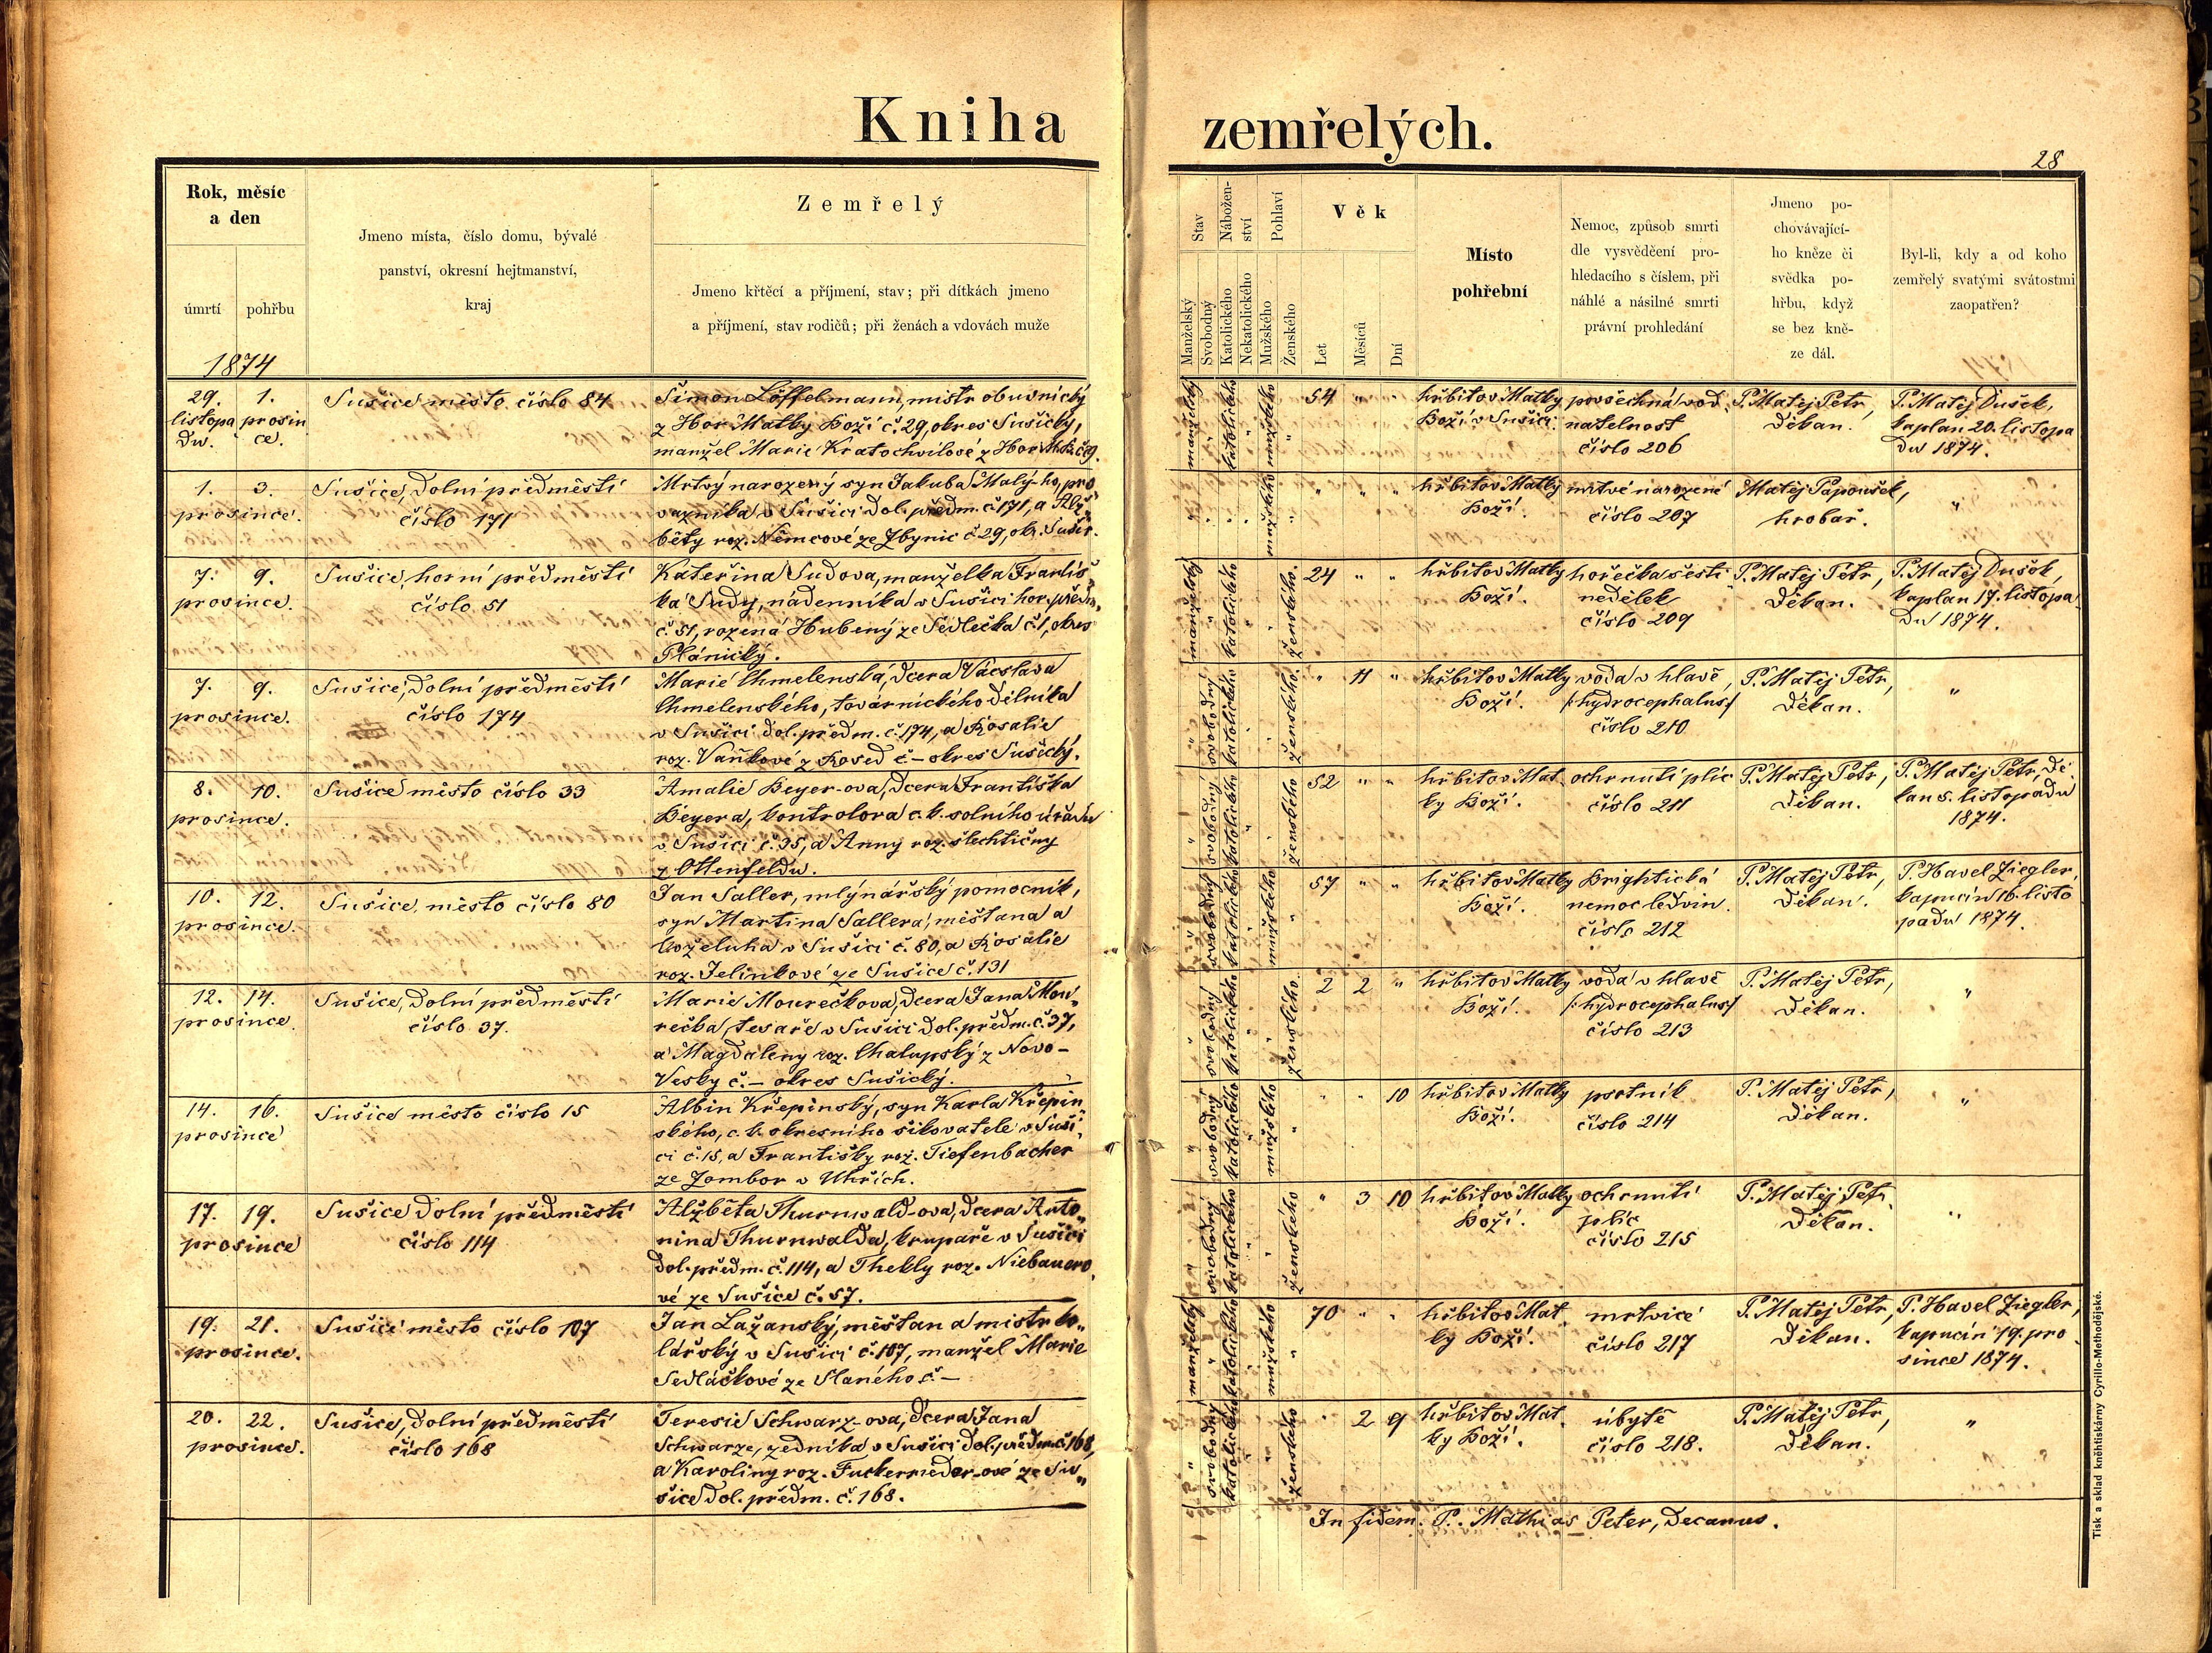 Kniha zemřelých.
28
Rok, měsíc
a den
úmrtí
pohřbu
Jmeno místa, číslo domu, bývalé
panství, okresní hejtmanství,
kraj
Zemřelý
Jmeno křtěcí a příjmení, stav; při dítkách jmeno
a příjmení, stav rodičů; při ženách a vdovách muže
Stav
Nábožen-
ství
Pohlaví
Věk
Manželský
Svobodný
Katolického
Nekatolického
Mužského
Ženského
Let
Měsíců
Dní
Místo
pohřební
Nemoc, způsob smrti
dle vysvědčení pro-
hledacího s číslem, při
náhlé a násilné smrti
právní prohledání
Jmeno po-
chovávající-
ho kněze či
svědka po-
hřbu, když
se bez kně-
ze dál.
Byl-li, kdy a od koho
zemřelý svatými svátostmi
zaopatřen?
1874
29. 1.
listopa prosin
du. ce.
Sušice město číslo 84
Šimon Löffelmann, mistr obuvnický
z Hor Matky Boží č. 29, okres Sušický,
manžel Marie Kratochvilové z Hor
manželský
katolického
mužského
54 " "
hřbitov Matky
Boží v Sušici.
povšechná vod
natelnost
číslo 206
P. Matěj Petr,
Děkan.
P. Matěj Dušek,
kaplan 20. listopa
du 1874.
1. 3.
prosince.
Sušice, Dolní předměstí
číslo 171
Mrtvý narozený syn Jakuba Malýho, pro
vazníka v Sušici Dol. předm. č. 171, a Alž„
běty roz. Němcové ze Zbynic č. 29, okr. Sušic.
mužského
" " "
hřbitov Matky
Boží.
mrtvě narozené
číslo 207
Matěj Papoušek,
hrobař.
"
7. 9.
prosince.
Sušice, horní předměstí
číslo 51
Kateřina Sudova, manželka Františ„
ka Sudy, nádenníka v Sušici hor. předm.
č. 51, rozená Hubený ze Sedlečka č. 1, okres
Plánický.
manželský
katolického
ženského.
24 " "
hřbitov Matky
Boží.
hořečka šesti
nedělek
číslo 209
P. Matěj Petr,
Děkan.
P. Matěj Dušek,
kaplan 17. listopa
du 1874.
7. 9.
prosince.
Sušice, Dolní předměstí
číslo 174
Marie Chmelenská, Dcera Václava
Chmelenského, továrnického Dělníka
v Sušici Dol. předm. č. 174, a Rosalie
roz. Vaňkové z Rosed č – okres Sušický.
svobodný
katolického
ženského.
" 11 "
hřbitov Matky
Boží.
voda v hlavě,
/:hydrocephalus:/
číslo 210
P. Matěj Petr,
Děkan.
"
8. 10.
prosince.
Sušice město číslo 33
Amalie Beyer-ova, Dcera Františka
Beyera, kontrolora c. k. solního úřadu
v Sušici č. 35, a Anny roz. šlechtičny
z Ottenfeldu.
svobodný
katolického
ženského
52 " "
hřbitov Mat
ky Boží.
ochrnutí plic
číslo 211
P. Matěj Petr,
Děkan.
P. Matěj Petr, Dě
kan 5. listopadu
1874.
10. 12.
prosince.
Sušice, město číslo 80
Jan Saller, mlýnářský pomocník,
syn Martina Sallera, měšťana a
koželuha v Sušici č. 80, a Rosalie
roz. Jelínkové ze Sušice č. 131
svobodný
katolického
mužského
57 " "
hřbitov Matky
Boží.
Brightická
nemoc ledvin.
číslo 212
P. Matěj Petr,
Děkan.
P. Havel Ziegler,
kapucín 16. listo
padu 1874.
12. 14.
prosince.
Sušice, Dolní předměstí
číslo 37.
Marie Mourečkova, Dcera Jana Mou„
rečka, tesaře v Sušici Dol. předm. č. 37,
a Magdaleny roz. Chalupský z Novo-
Vesky č. – okres Sušický.
svobodný
katolického
ženského.
2 2 "
hřbitov Matky
Boží.
voda v hlavě
/:hydrocephalus:/
číslo 213
P. Matěj Petr,
Děkan.
"
14. 16.
prosince
Sušice město číslo 15
Albin Křepinský, syn Karla Křepin„
ského, c. k. okresního šikovatele v Suši„
ci č. 15, a Františky roz. Tiefenbacher
ze Zombor v Uhřích.
svobodný
katolického
mužského
" " 10
hřbitov Matky
Boží.
psotník
číslo 214
P. Matěj Petr,
Děkan.
"
17. 19.
prosince
Sušice Dolní předměstí
číslo 114
Alžběta Thurnwald-ova, Dcera Anto„
nina Thurnwalda, krupaře v Sušici
Dol. předm. č. 114, a Thekly roz. Niebauero„
vé ze Sušice č. 57.
svobodný
katolického
ženského
" 3 10
hřbitov Matky
Boží.
ochrnutí
plic
číslo 215
P. Matěj Petr,
Děkan.
"
19. 21.
prosince.
Sušice město číslo 107
Jan Lažanský, měšťan a mistr ko„
lářský v Sušici č. 107, manžel Marie
Sedláčkové ze Slaného č –
manželský
katolického
mužského
70 " "
hřbitov Mat
ky Boží.
mrtvice
číslo 217
P. Matěj Petr,
Děkan.
P. Havel Ziegler,
kapucín 19. pro
since 1874.
20. 22.
prosince.
Sušice, Dolní předměstí
číslo 168
Teresie Schwarz-ova, Dcera Jana
Schwarze, zedníka v Sušici Dol. předm. č. 168,
a Karoliny roz. Fuckerrieder-ové ze Su„
šice Dol. předm. č. 168.
svobodný
katolického
ženského
" 2 9
hřbitov Mat.
ky Boží.
úbytě
číslo 218.
P. Matěj Petr,
Děkan.
"
In fidem. P. Mathias Peter, Decanus.
Tisk a sklad kněhtiskárny Cyrillo-Methodějské.